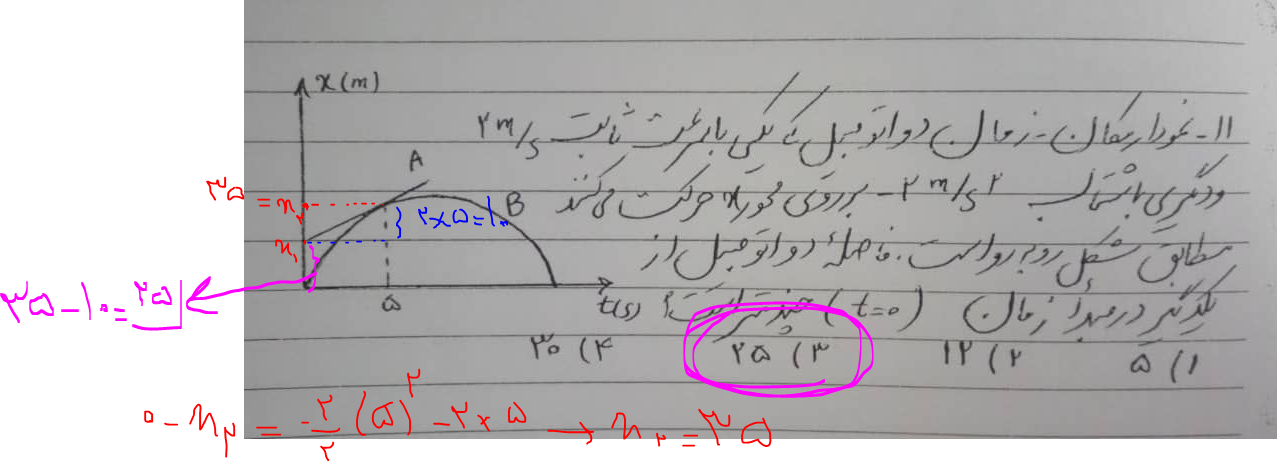 x(m)
۱۱- نمودار مکان - زمان دو اتومبیل که یکی با سرعت ثابت ۲ m/s
و دیگری با شتاب -۲ m/s۲ بر روی محور x حرکت می کنند
مطابق شکل روبه رو است. فاصلهٔ دو اتومبیل از
یکدیگر در مبدأ زمان (t=۰) چند متر است؟
۱) ۵
۲) ۱۲
۳) ۲۵
۴) ۳۰
A
B
۳۵ = x۲
x۱
۲×۵=۱۰
۵
t(s)
۳۵-۱۰=۲۵
۰-x۲ = -۲/۲ (۵)۲ -۲×۵ → x۲=۳۵